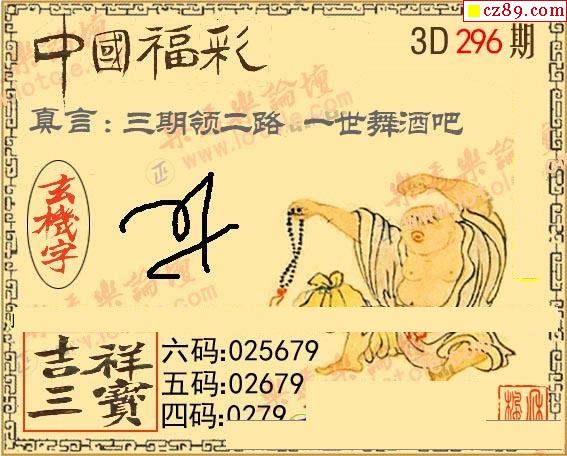 cz89.com
中國福彩
3D 296 期
真言：三期领二路 一世舞酒吧
玄機字
吉祥
三寶
六码:025679
五码:02679
四码:0279